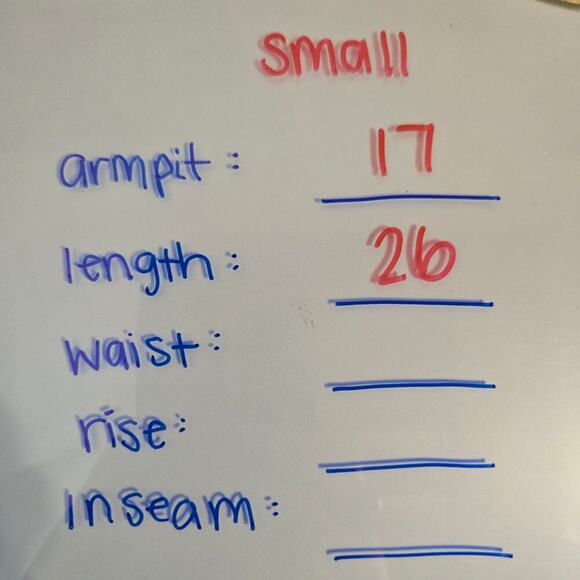 small
armpit: 17
length: 26
waist:
rise:
inseam: